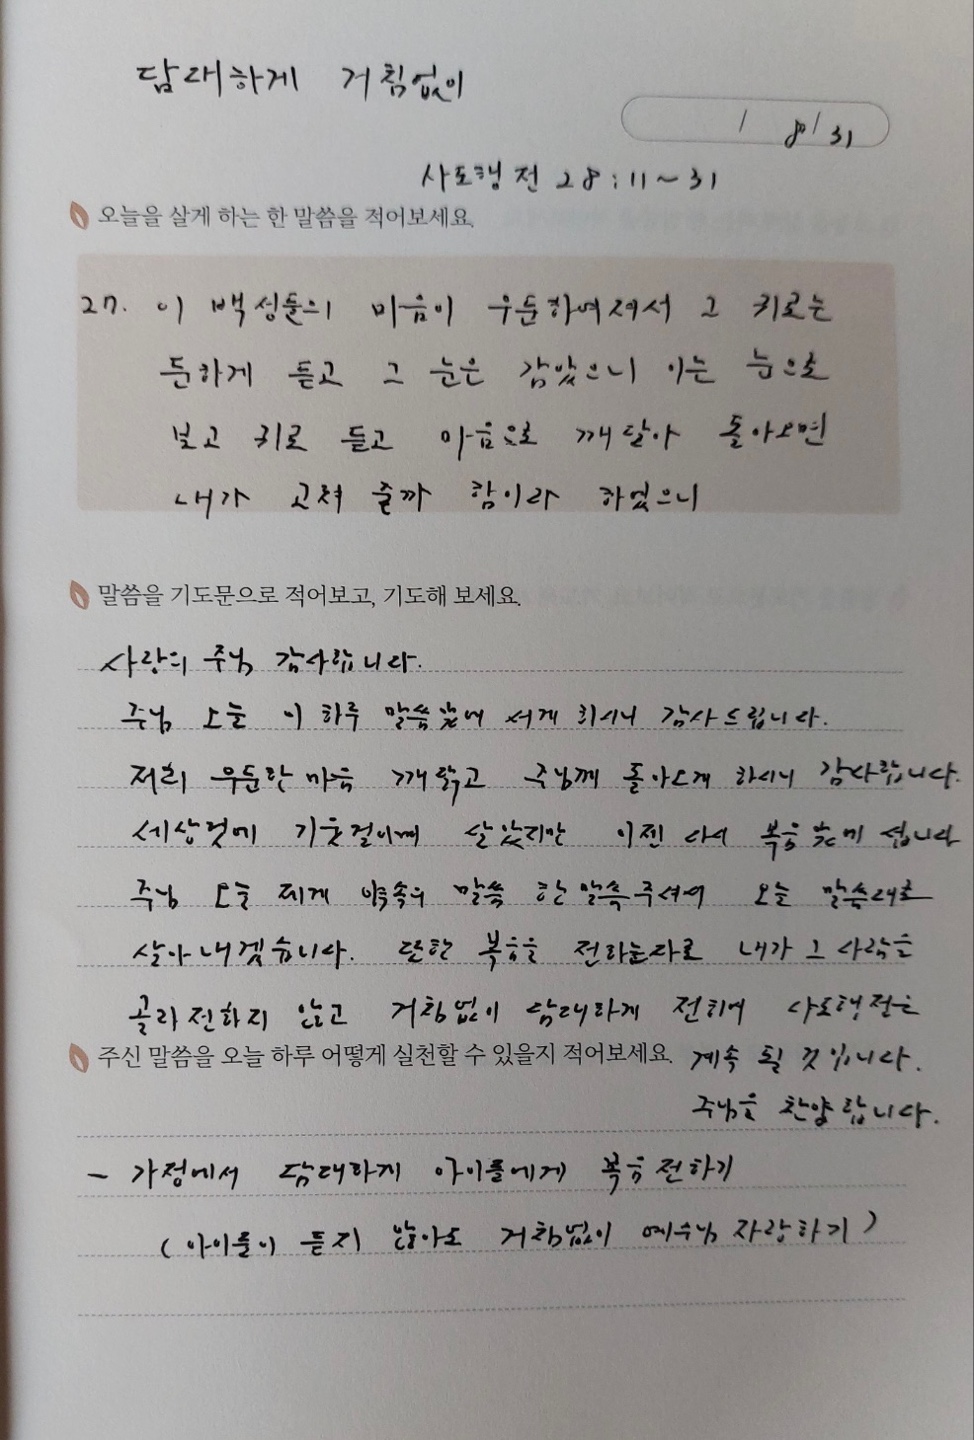 담대하게 거침없이
/ 8/31
사도행전 28:11~31
오늘을 살게 하는 한 말씀을 적어보세요.
27. 이 백성들의 마음이 우둔하여져서 그 귀로는
둔하게 듣고 그 눈은 감았으니 이는 눈으로
보고 귀로 듣고 마음으로 깨달아 돌아오면
내가 고쳐 줄까 함이라 하였으니
말씀을 기도문으로 적어보고, 기도해 보세요.
사랑의 주님 감사합니다.
주님 오늘 이 하루 말씀앞에 서게 하시니 감사드립니다.
저희 우둔한 마음 깨닭고 주님께 돌아오게 하시니 감사합니다.
세상것에 기웃걸이며 살았지만 이젠 다시 복음앞에 섭니다
주님 오늘 제게 약속의 말씀 한말씀주셔서 오늘 말씀대로
살아내겠습니다. 또한 복음을 전하는자로 내가 그 사람을
골라 전하지 않고 거침없이 담대하게 전하여 사도행전은
주신 말씀을 오늘 하루 어떻게 실천할 수 있을지 적어보세요.
계속 될 것입니다.
주님을 찬양합니다.
- 가정에서 담대하게 아이들에게 복음전하기
(아이들이 듣지 않아도 거침없이 예수님 자랑하기)